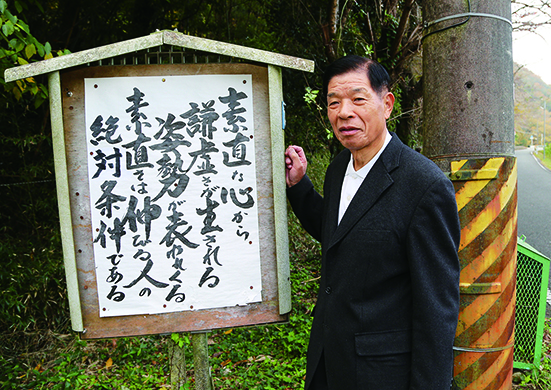 素直な心から、
謙虚さが生される
姿勢が表われくる
素直では伸びる人の
絶対条件である